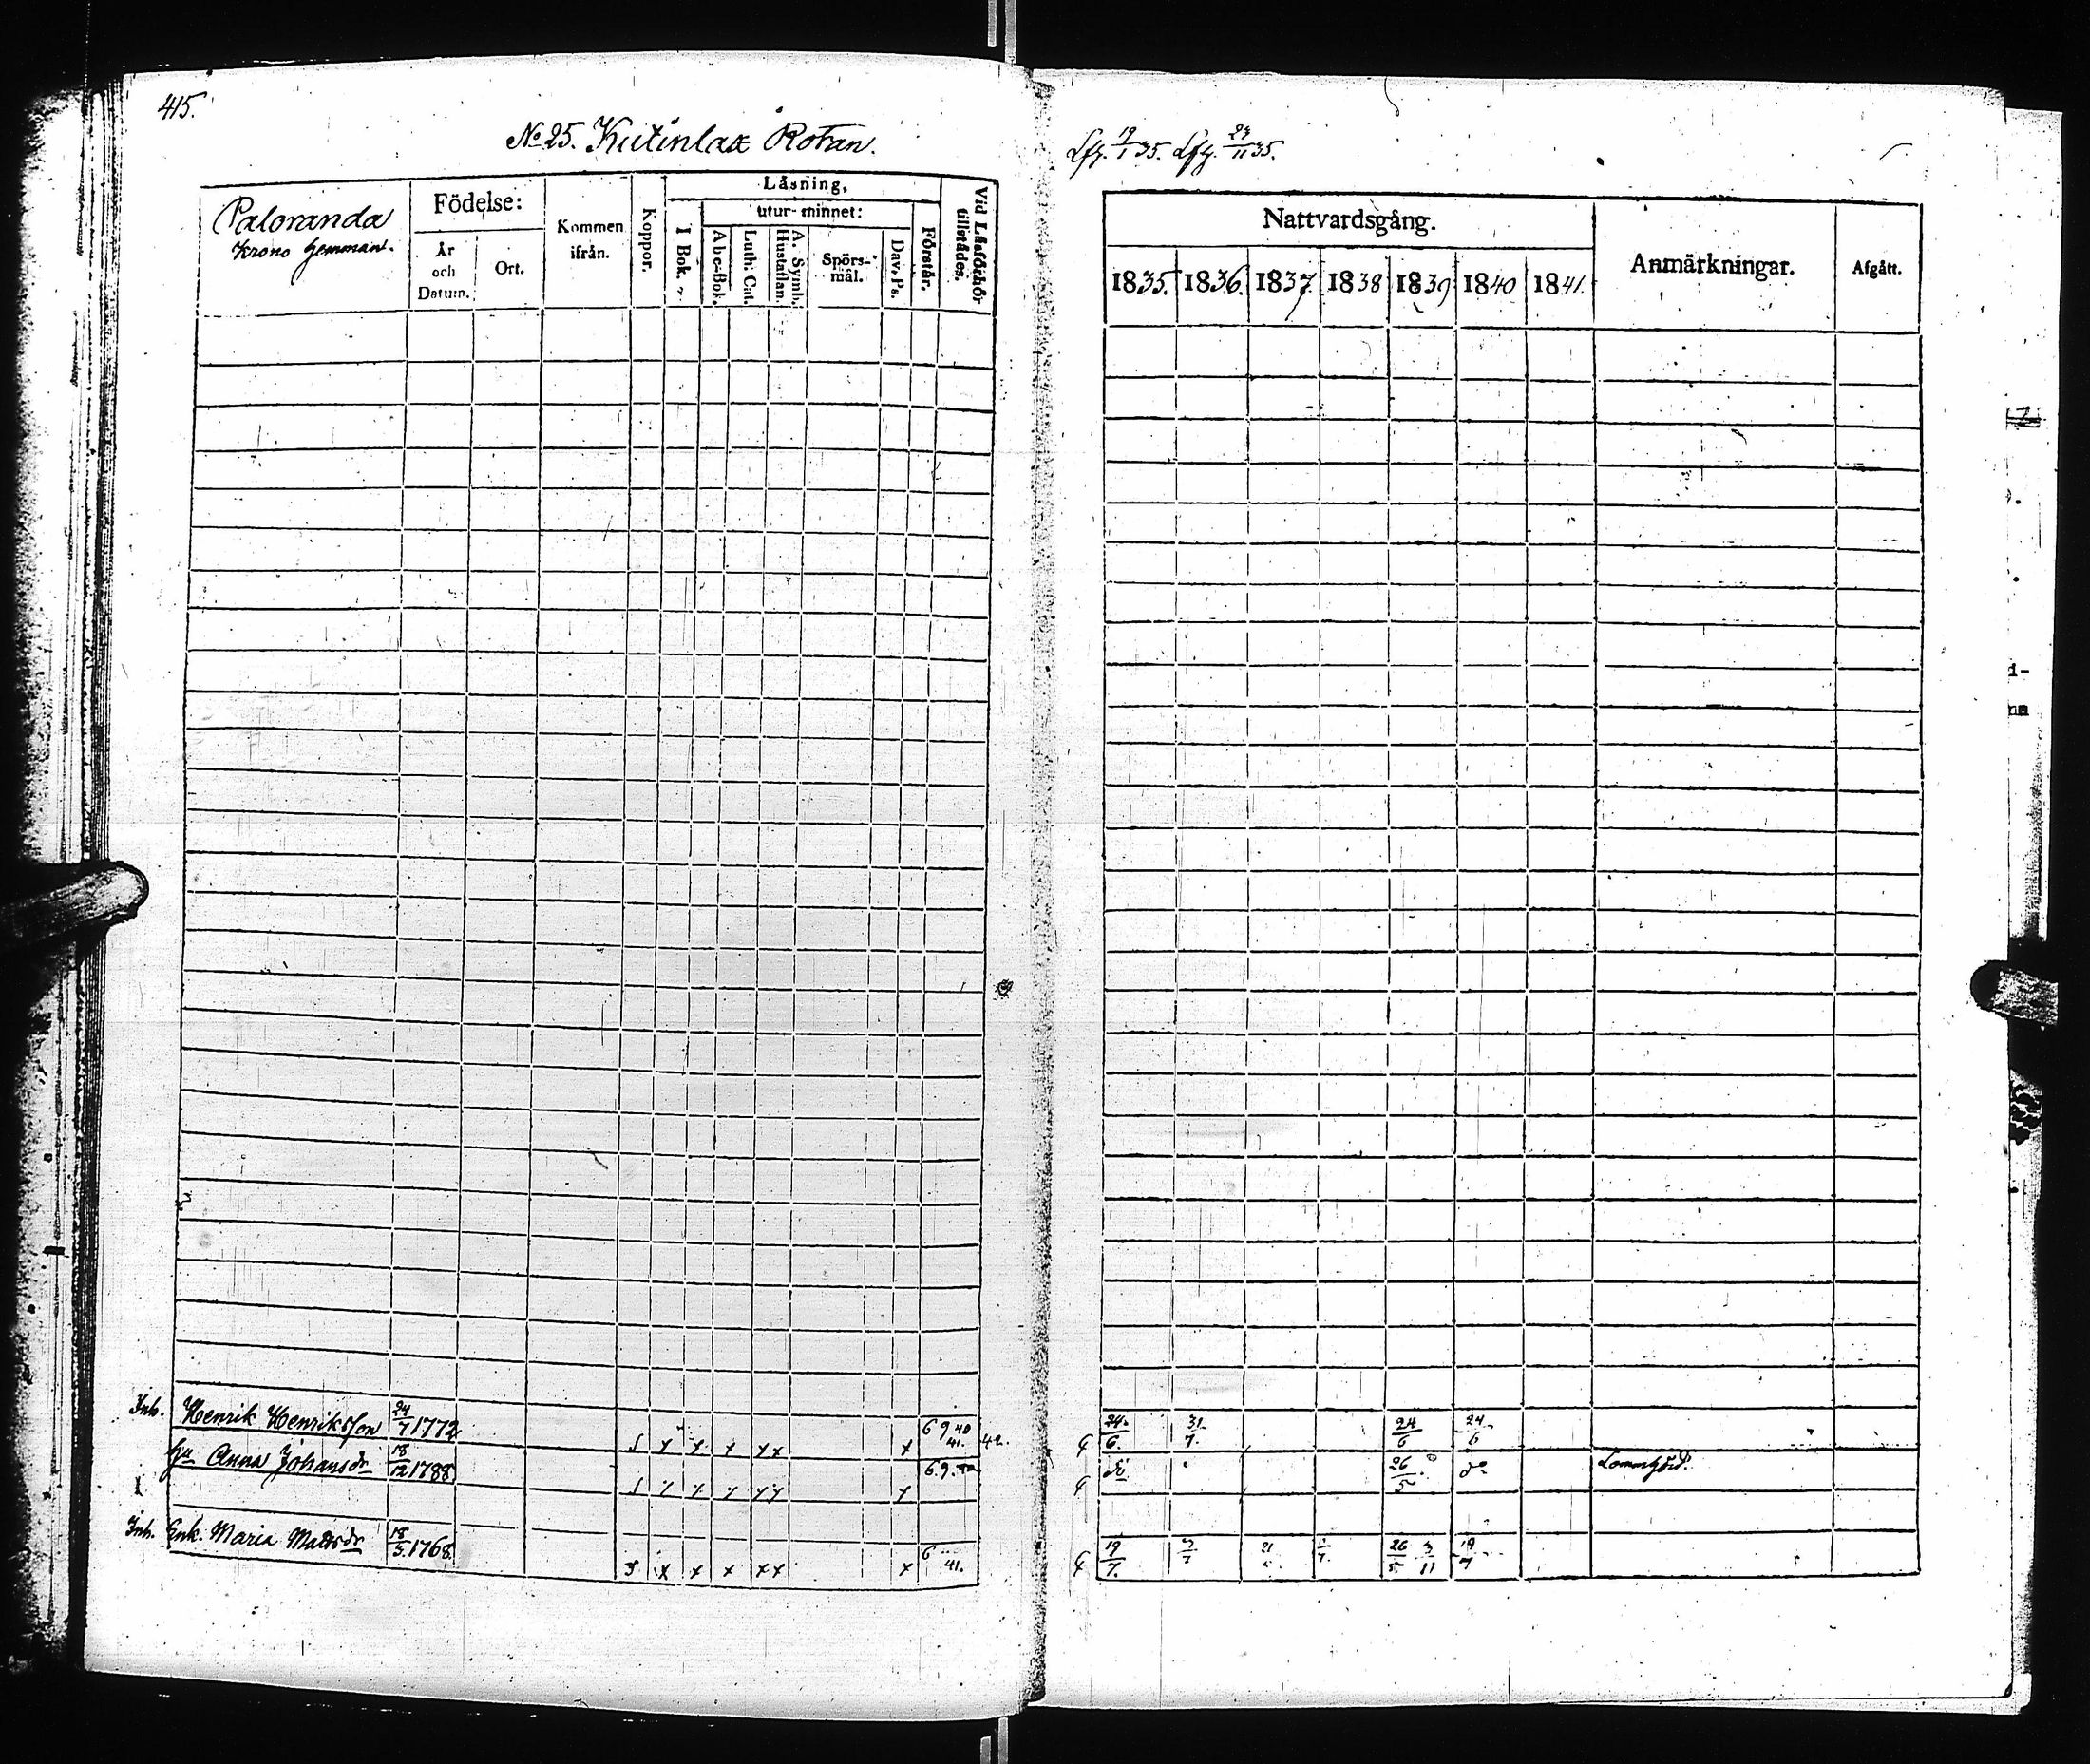 415.
No 25. Kutinlax Rotan.
Paloranda
Krono Hemman.
Födelse:
År och Datum.
Ort.
Kommen ifrån.
Koppor.
Läsning,
I Bok.
utur minnet:
Abc-Bok.
Luth: Cat.
A. Symb. Hustaflan.
Spörs-mål.
Dav. Ps.
Förstår.
Vid Läsförhör tillstädes.
Inh. Henrik Henriksson 24/7 1772 6 9 40 41. 42.
Hu Anna Johansdr 18/12 1788 6.9.
Inh. Enk. Maria Mattsdr 18/5 1768. 6 41.
19/1 35. 24/11 35.
Nattvardsgång.
1835. 1836. 1837. 1838 1839 1840 1841.
Anmärkningar.
Afgått.
24/6. 31/7. 24/6 24/6
do 26/5 do
19/7. 26/5 3/11 19/7